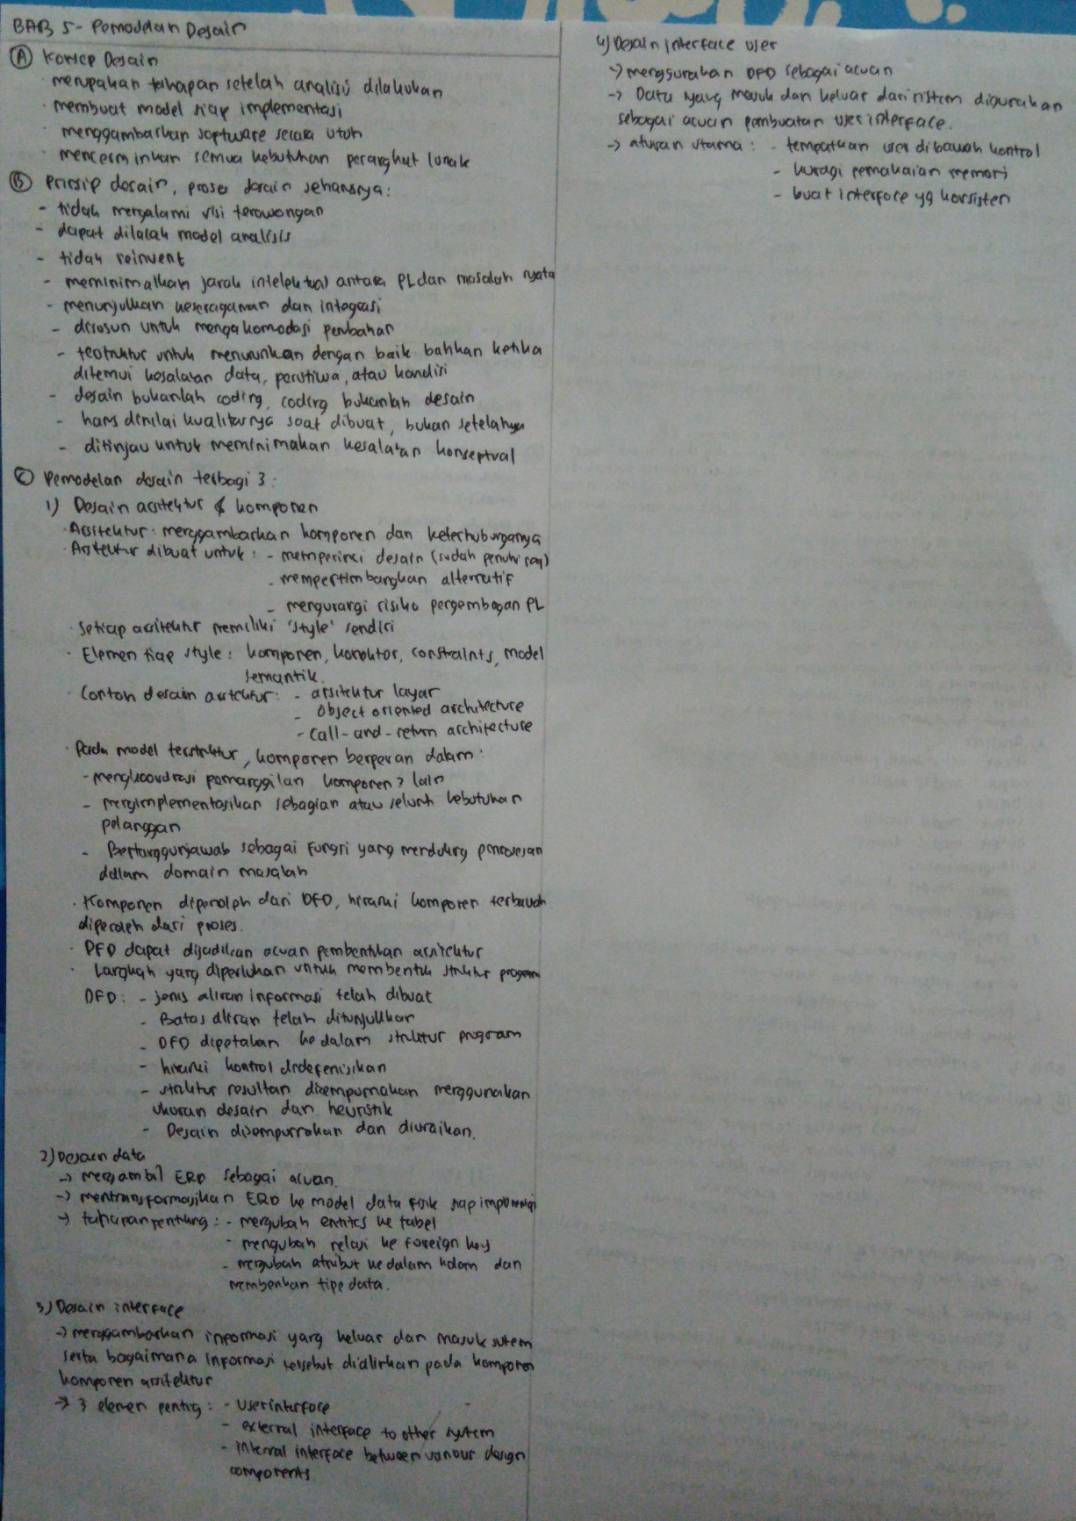 BAB 5 - Pemodelan Desain
Ⓐ Konsep Desain
· merupakan tahapan setelah analisis dilakukan
· membuat model siap implementasi
· menggambarkan software secara utuh
· mencerminkan semua kebutuhan perangkat lunak
Ⓑ Prinsip desain, proses desain seharusnya:
- tidak mengalami visi terowongan
- dapat dilacak model analisis
- tidak reinvent
- meminimalkan jarak intelektual antara PL dan masalah nyata
- menunjukkan keseragaman dan integrasi
- disusun untuk mengakomodasi perubahan
- terstruktur untuk menurunkan dengan baik bahkan ketika
ditemui kesalahan data, peristiwa, atau kondisi
- desain bukanlah coding, coding bukanlah desain
- harus dinilai kualitasnya saat dibuat, bukan setelahnya
- ditinjau untuk meminimakan kesalahan konseptual
Ⓒ Pemodelan desain terbagi 3:
1) Desain arsitektur & komponen
· Arsitektur: menggambarkan komponen dan keterhubungannya
· Arsitektur dibuat untuk: - memperinci desain (sudah penuhi req)
- mempertimbangkan alternatif
- mengurangi risiko pengembangan PL
· Setiap arsitektur memiliki 'style' sendiri
· Elemen tiap style: komponen, konektor, constraints, model
semantik.
· Contoh desain arsitektur: - arsitektur layar
- object oriented architecture
- call-and-return architecture
· Pada model terstruktur, komponen berperan dalam:
- mengkoordinasi pemanggilan komponen2 lain
- mengimplementasikan sebagian atau seluruh kebutuhan
pelanggan
- Bertanggungjawab sebagai fungsi yang mendukung pemrosesan
dalam domain masalah
· Komponen diperoleh dari DFD, hirarki komponen terbawah
diperoleh dari proses.
· DFD dapat dijadikan acuan pembentukan arsitektur
· Langkah yang diperlukan untuk membentuk struktur program
DFD: - jenis aliran informasi telah dibuat
- Batas aliran telah ditunjukkan
- DFD dipetakan ke dalam struktur program
- hirarki kontrol didefenisikan
- struktur resultan disempurnakan menggunakan
ukuran desain dan heuristik
- Desain disempurnakan dan diuraikan.
2) Desain data
-> mengambil ERD sebagai acuan.
-> mentransformasikan ERD ke model data fisik siap implementasi
-> tahapan penting: - mengubah entitas ke tabel
- mengubah relasi ke foreign key
- mengubah atribut ke dalam kolom dan
memberikan tipe data.
3) Desain interface
-> menggambarkan informasi yang keluar dan masuk sistem
serta bagaimana informasi tersebut dialirkan pada komponen
komponen arsitektur
-> 3 elemen penting: - User interface
- external interface to other system
- internal interface between various design
components
4) Desain interface user
-> menggunakan DFD sebagai acuan
-> Data yang masuk dan keluar dari sistem digunakan
sebagai acuan pembuatan user interface.
-> aturan utama: - tempatkan user dibawah kontrol
- kurangi pemakaian memori
- buat interface yg konsisten